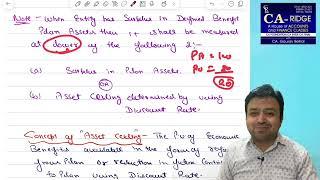 Note - When Entity has Surplus in Defined Benefit
Plan Assets then it shall be measured
at lower of the following 2:-
PA = 100
PO = 80
20
(a) Surplus in Plan Assets.
OR
(b) Asset Ceiling determined by using
Discount Rate.
Concept of "Asset Ceiling" - The P.V of Economic
Benefits available in the form of refund
from Plan or reduction in future Contri
to Plan using Discount Rate.
CA-RIDGE
A House of ACCOUNTS
and FINANCE CLASSES